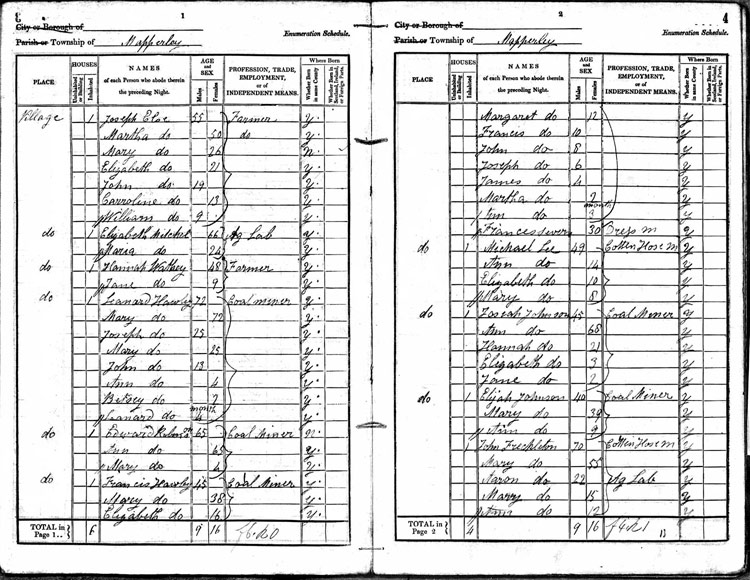 8
1
City or Borough of
Parish or Township of Mapperley
Enumeration Schedule.
PLACE
HOUSES
Uninhabited or Building
Inhabited
NAMES
of each Person who abode therein
the preceding Night.
AGE and SEX
Males
Females
PROFESSION, TRADE,
EMPLOYMENT,
or of
INDEPENDENT MEANS.
Where Born
Whether Born in same County
Whether Born in Scotland, Ireland, or Foreign Parts.
Village 1 Joseph 55 Farmer Y.
Martha do 50 do Y.
Mary do 26 N.
Elizabeth do 21 Y.
John do 19 Y.
Carroline do 13 Y.
William do 9 Y.
do 1 Elizabeth Mitchel 66 Ag Lab Y.
Maria do 24 Y.
do 1 Hannah 48 Farmer Y.
Jane do 9 Y.
do 1 Leanard Hawley 72 Coal miner Y.
Mary do 72 Y.
Joseph do 25 Y.
Mary do 25 Y.
John do 13 Y.
Ann do 4 Y.
Betsey do 2 Y.
month
Leanard do 4 Y.
do 1 Edward 65 Coal Miner N.
Ann do 65 Y.
Mary do 4 Y.
do 1 Francis Hawley 45 Coal Miner Y.
Mary do 38 Y.
Elizabeth do 16 Y.
TOTAL in Page 1.. 6 9 16
4
2
City or Borough of
Parish or Township of Mapperley
Enumeration Schedule.
PLACE
HOUSES
Uninhabited or Building
Inhabited
NAMES
of each Person who abode therein
the preceding Night.
AGE and SEX
Males
Females
PROFESSION, TRADE,
EMPLOYMENT,
or of
INDEPENDENT MEANS.
Where Born
Whether Born in same County
Whether Born in Scotland, Ireland, or Foreign Parts.
Margaret do 12 Y
Francis do 10 Y
John do 8 Y
Joseph do 6 Y
James do 4 Y
Martha do 2 Y
month
Ann do 3 Y
Frances 30 Dress M Y
do 1 Michael Lee 49 Cotten Hose M Y
Ann do 14 Y
Elizabeth do 10 Y
Mary do 8 Y
do 1 Joseph Johnson 45 Coal Miner Y
Ann do 68 Y
Hannah do 21 Y
Elizabeth do 3 Y
Jane do 2 Y
do 1 Elijah Johnson 40 Coal Miner Y
Mary do 39 Y
Ann do 9 Y
1 John Freckleton 70 Cotten Hose M Y
Mary do 55 Y
Aaron do 22 Ag Lab Y
Marry do 15 Y
Ann do 12 Y
TOTAL in Page 2 4 9 16